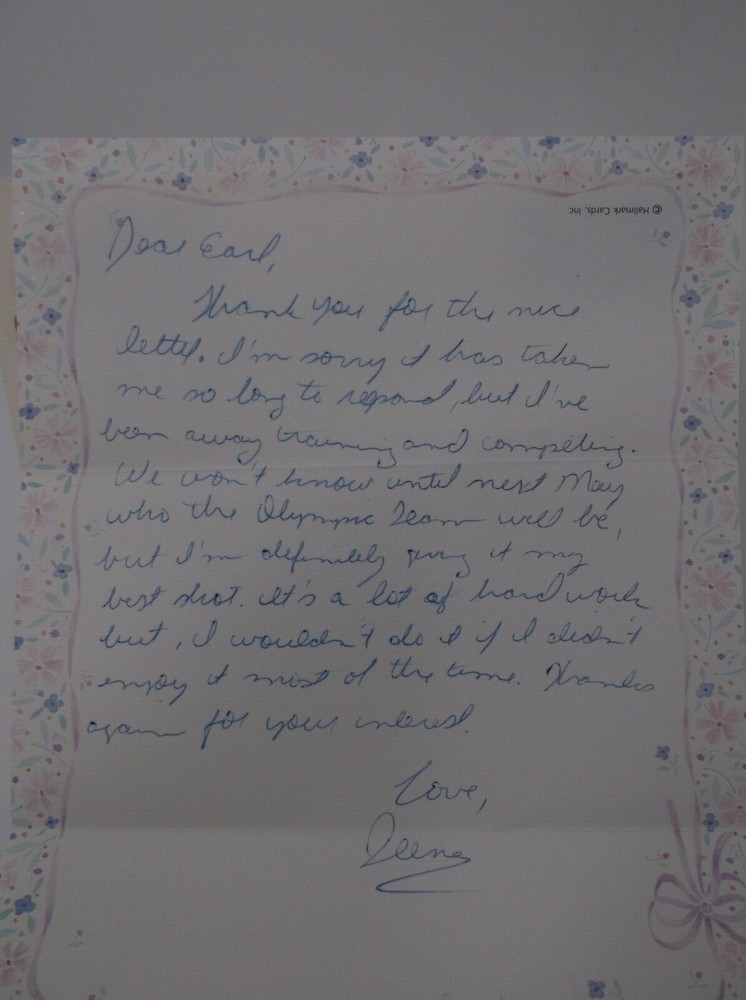 © Hallmark Cards, Inc
Dear Earl,
Thank you for the nice
letter. I'm sorry it has taken
me so long to respond, but I've
been away training and competing.
We won't know until next May
who the Olympic Team will be,
but I'm definitely giving it my
best shot. It's a lot of hard work
but, I wouldn't do it if I didn't
enjoy it most of the time. Thanks
again for your interest.
Love,
Deena